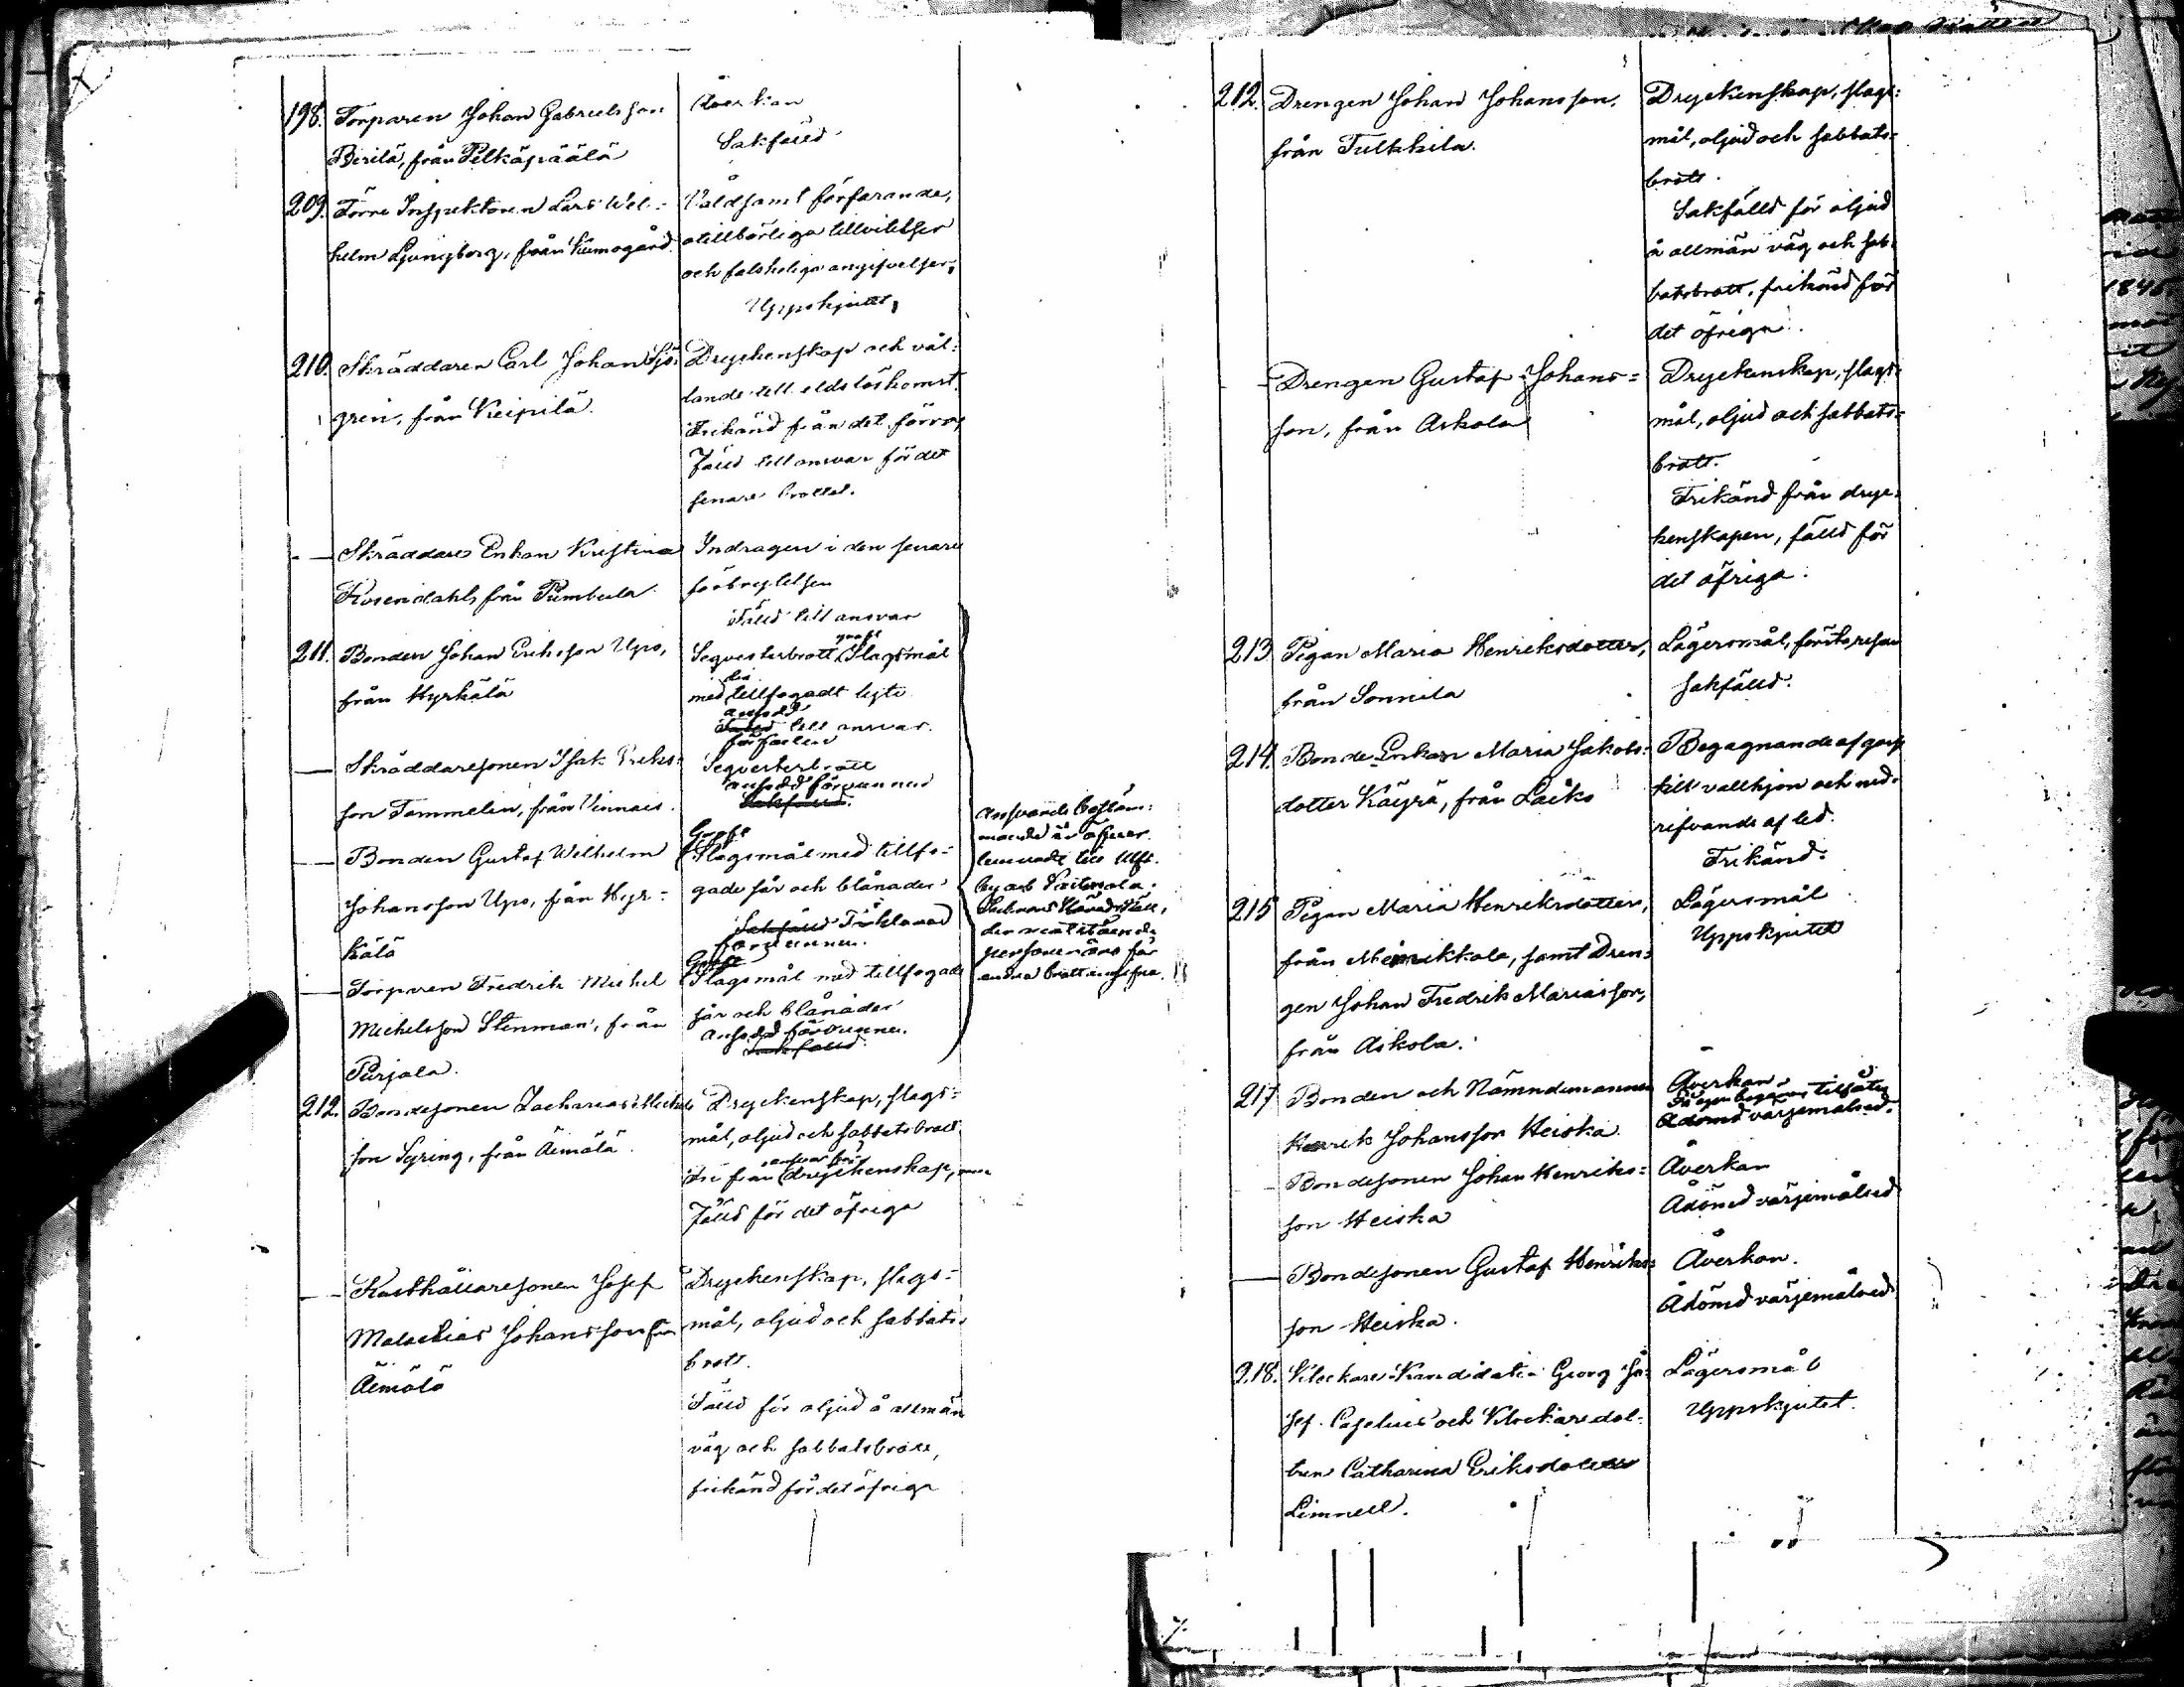 198. Torparen Johan Gabrielsson
Pirilä, från Pelkäpäälä
Åverkan
Sakfälld
209. Förre Inspektoren Lars Wil-
helm Ljungberg, från Kumogård
Våldsamt förfarande,
otillbörliga tillvitelser
och falskeliga angifvelser,
Uppskjutet,
210. Skräddaren Carl Johan Sjö-
gren, från Kreipilä.
Dryckenskap och vål-
lande till eldslöskomst.
Frikänd från det förra,
Fälld till ansvar för det
senare brottet.
— Skräddare Enkan Kristina
Rosendahl, från
Indragen i den senare
förbrytelsen
Fälld till ansvar
211. Bonden Johan Eriksson Upo,
från Hyrkälä
Seqvesterbrott, groft Slagsmål
med tillfogadt lyte
ansedd
Fälld till ansvar.
förfallen
— Skräddaresonen Isak Eriks-
son Tammelin, från Vinnais.
Seqvesterbrott
ansedd förvunnen
Sakfälld.
— Bonden Gustaf Wilhelm
Johansson Upo, från Hyr-
kälä
Groft
Slagsmål med tillfo-
gade sår och blånader
Sakfälld Förklarad
förvunnen.
— Torparen Fredrik Michel
Michelsson Stenman, från
Purjala.
Groft
Slagsmål med tillfogade
sår och blånader
Ansedd förvunnen.
Sakfälld
Ansvarets bestäm-
mande är öfver-
lemnadt till Ulfs-
by och
Socknars Häradsrätt,
der
personer äro för
andra brott angifna.
212. Bondesonen Zacharias Michels-
son Syring, från Äimälä.
Dryckenskap, slags-
mål, oljud och sabbatsbrott.
Fri från ansvar för dryckenskap, men
Fälld för det öfriga
— Rusthållaresonen Josef
Malachias Johansson från
Äimälä
Dryckenskap, slags-
mål, oljud och sabbats-
brott.
Fälld för oljud å allmän
väg och sabbatsbrott,
frikänd för det öfriga
212. Drengen Johan Johansson,
från Tulkkila.
Dryckenskap, slags-
mål, oljud och sabbats-
brott.
Sakfälld för oljud
å allmän väg och sab-
batsbrott, frikänd för
det öfriga.
— Drengen Gustaf Johans-
son, från Askola
Dryckenskap, slags-
mål, oljud och sabbats-
brott.
Frikänd från dryc-
kenskapen, fälld för
det öfriga.
213 Pigan Maria Henriksdotter,
från Sonnila
Lägersmål, första resan
Sakfälld.
214. Bonde-Enkan Maria Jakobs-
dotter Käyrä, från Laiko
Begagnande af goss
till vallhjon och ned-
rifvande af led.
Frikänd.
215 Pigan Maria Henriksdotter,
från Meinikkala, samt Dren-
gen Johan Fredrik Mariasson,
från Askola.
Lägersmål
Uppskjutet
217 Bonden och Nämndemannen
Henrik Johansson Heiska.
Åverkan.
På egen begäran tillåten
Ådömd värjemålsed.
— Bondesonen Johan Henriks-
son Heiska
Åverkan
Ådömd värjemålsed
— Bondesonen Gustaf Henriks-
son Heiska.
Åverkan.
Ådömd värjemålsed
218. Klockare-Kandidaten Georg Jo-
sef Caselius och Klockaredot-
tren Catharina Eriksdotter
Limnell.
Lägersmål
Uppskjutet.